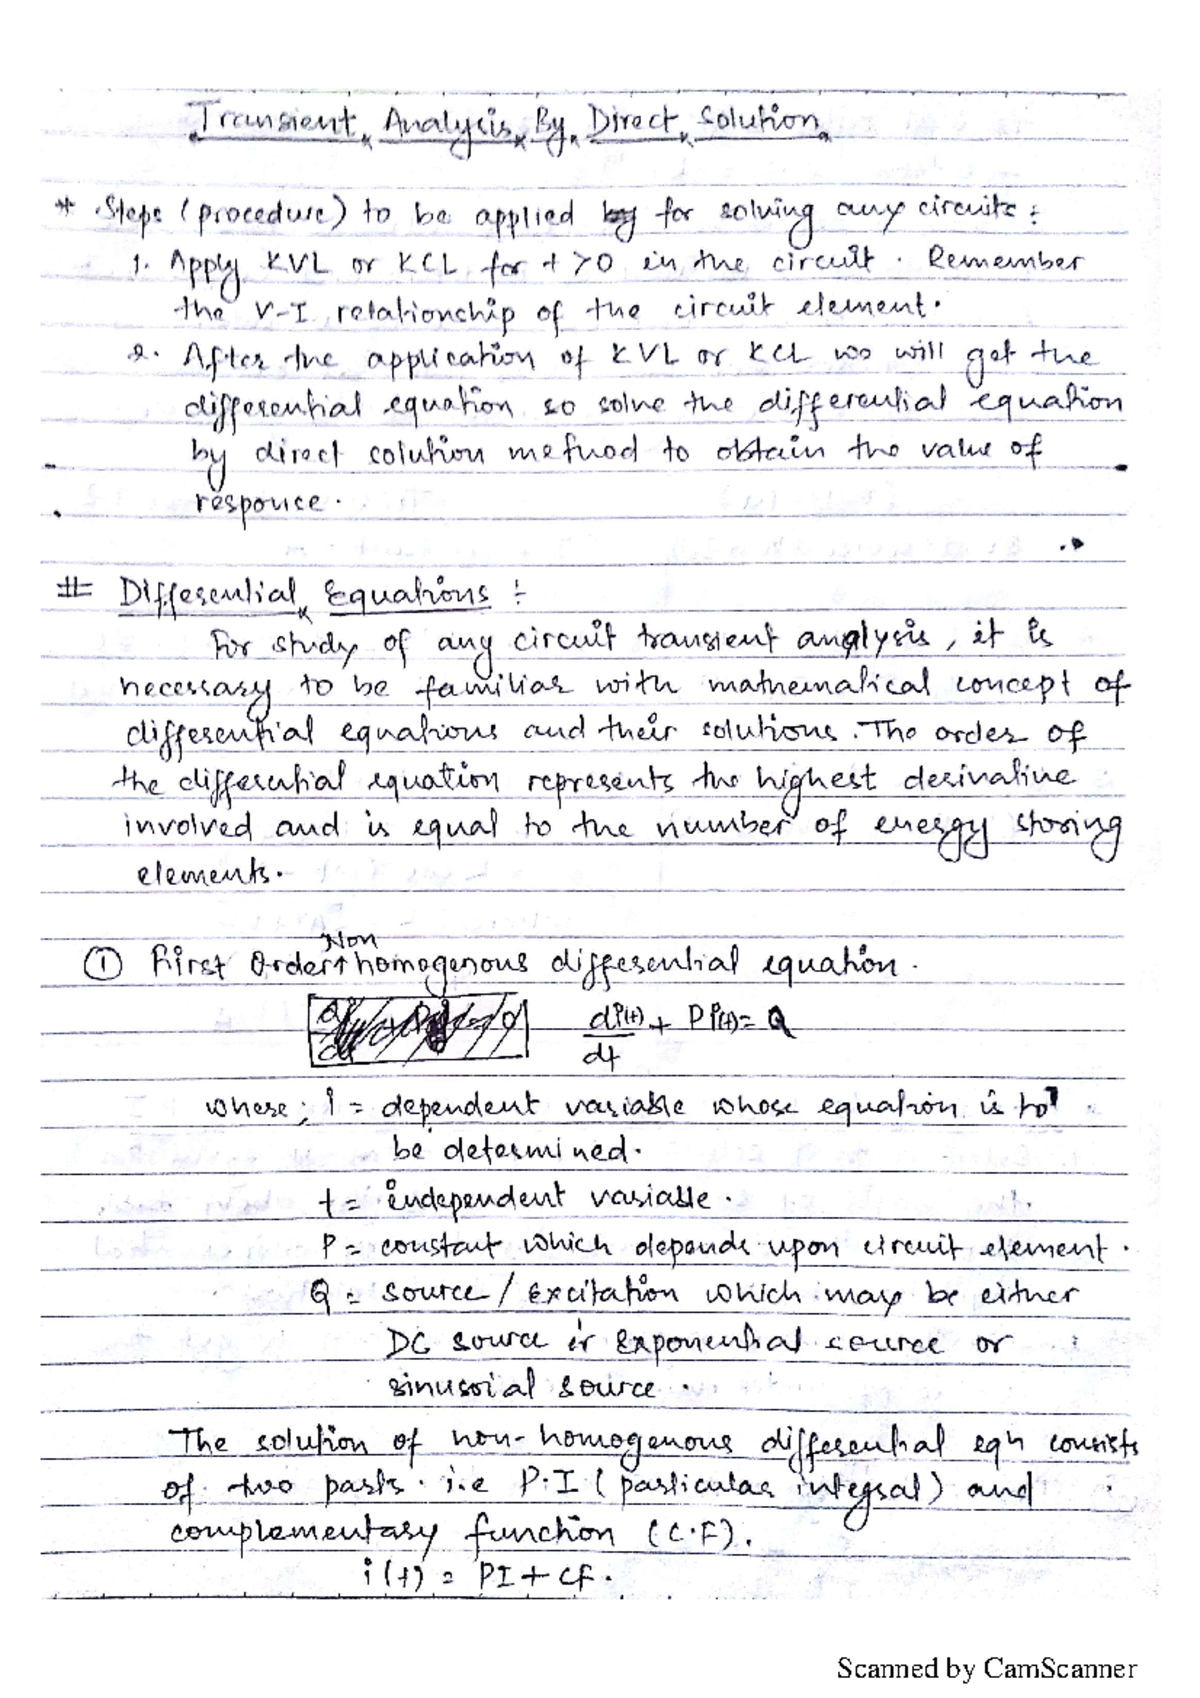 Transient Analysis By Direct Solution
* Steps (procedure) to be applied by for solving any circuits :
1. Apply KVL or KCL for t >0 in the circuit. Remember
the V-I relationship of the circuit element.
2. After the application of KVL or KCL we will get the
differential equation so solve the differential equation
by direct solution method to obtain the value of
responce.
# Differential Equations :
For study of any circuit transient analysis, it is
necessary to be familiar with mathematical concept of
differential equations and their solutions. The order of
the differential equation represents the highest derivative
involved and is equal to the number of energy storing
elements.
① First Order Non homogenous differential equation.
di(t)/dt + P i(t) = Q
where; i = dependent variable whose equation is to
be determined.
t = independent variable.
P = constant which depends upon circuit element.
Q = source / Excitation which may be either
DC source or Exponential source or
sinusoial source.
The solution of non-homogenous differential eqn consists
of two parts. i.e P.I (particular integral) and
complementary function (C.F).
i(t) = PI + CF.
Scanned by CamScanner